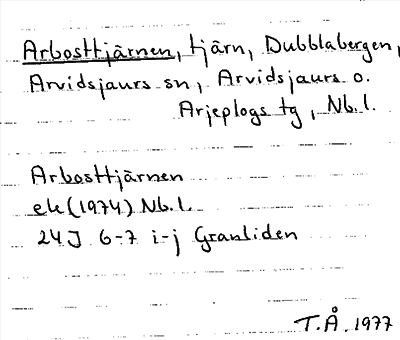 Arbosttjärnen, tjärn, Dubblabergen,
Arvidsjaurs sn, Arvidsjaurs o.
Arjeplogs tg, Nb.l.
Arbosttjärnen
ek (1974) Nb.l.
24J 6-7 i-j Granliden
T.Å. 1977